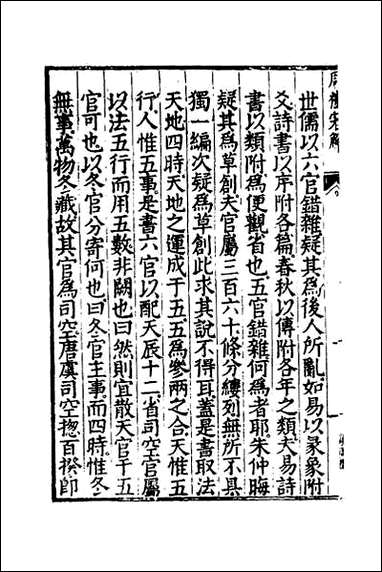 世儒以六官錯雜疑其為後人所亂如易以彖象附
爻詩書以序附各篇春秋以傳附各年之類夫易詩
書以類附為便觀省也五官錯雜何為者耶朱仲晦
疑其為草創夫官屬三百六十條分縷刻無所不具
獨一編次疑為草創此求其說不得耳蓋是書取法
天地四時天地之運成于五五為參兩之合天惟五
行人惟五事是書六官以配天辰十二省司空官屬
以法五行而用五數非闕也曰然則宜散天官于五
官可也以冬官分寄何也曰冬官主事而四時惟冬
無事萬物冬藏故其官為司空唐虞司空揔百揆即